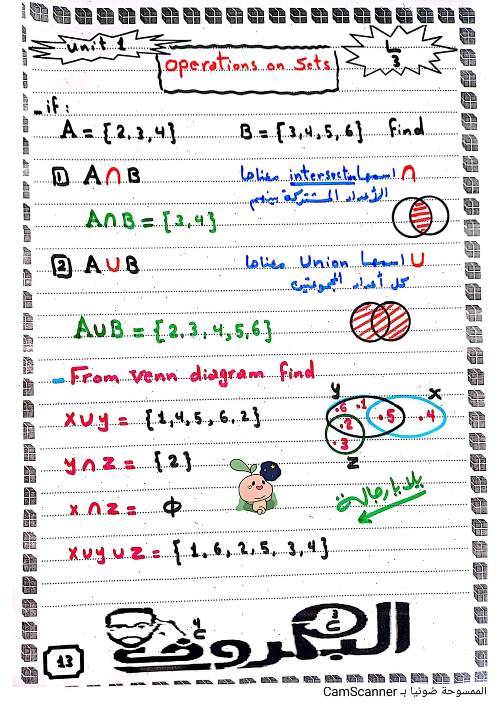 Unit 1
Operations on Sets
L 3
- if:
A = {2,3,4} B = {3,4,5,6} find
1 A∩B
∩ اسمها intersection معناها
الأعداد المشتركة بينهم
A∩B = {3,4}
2 A∪B
∪ اسمها Union معناها
كل أعداد المجموعتين
A∪B = {2,3,4,5,6}
- From venn diagram find
y x
.6 .1 .5 .4
.2
.3
z
x∪y = {1,4,5,6,2}
y∩z = {2}
x∩z = Φ
يلا يا رجالة
x∪y∪z = {1,6,2,5,3,4}
13
البكروف
الممسوحة ضوئيا بـ CamScanner